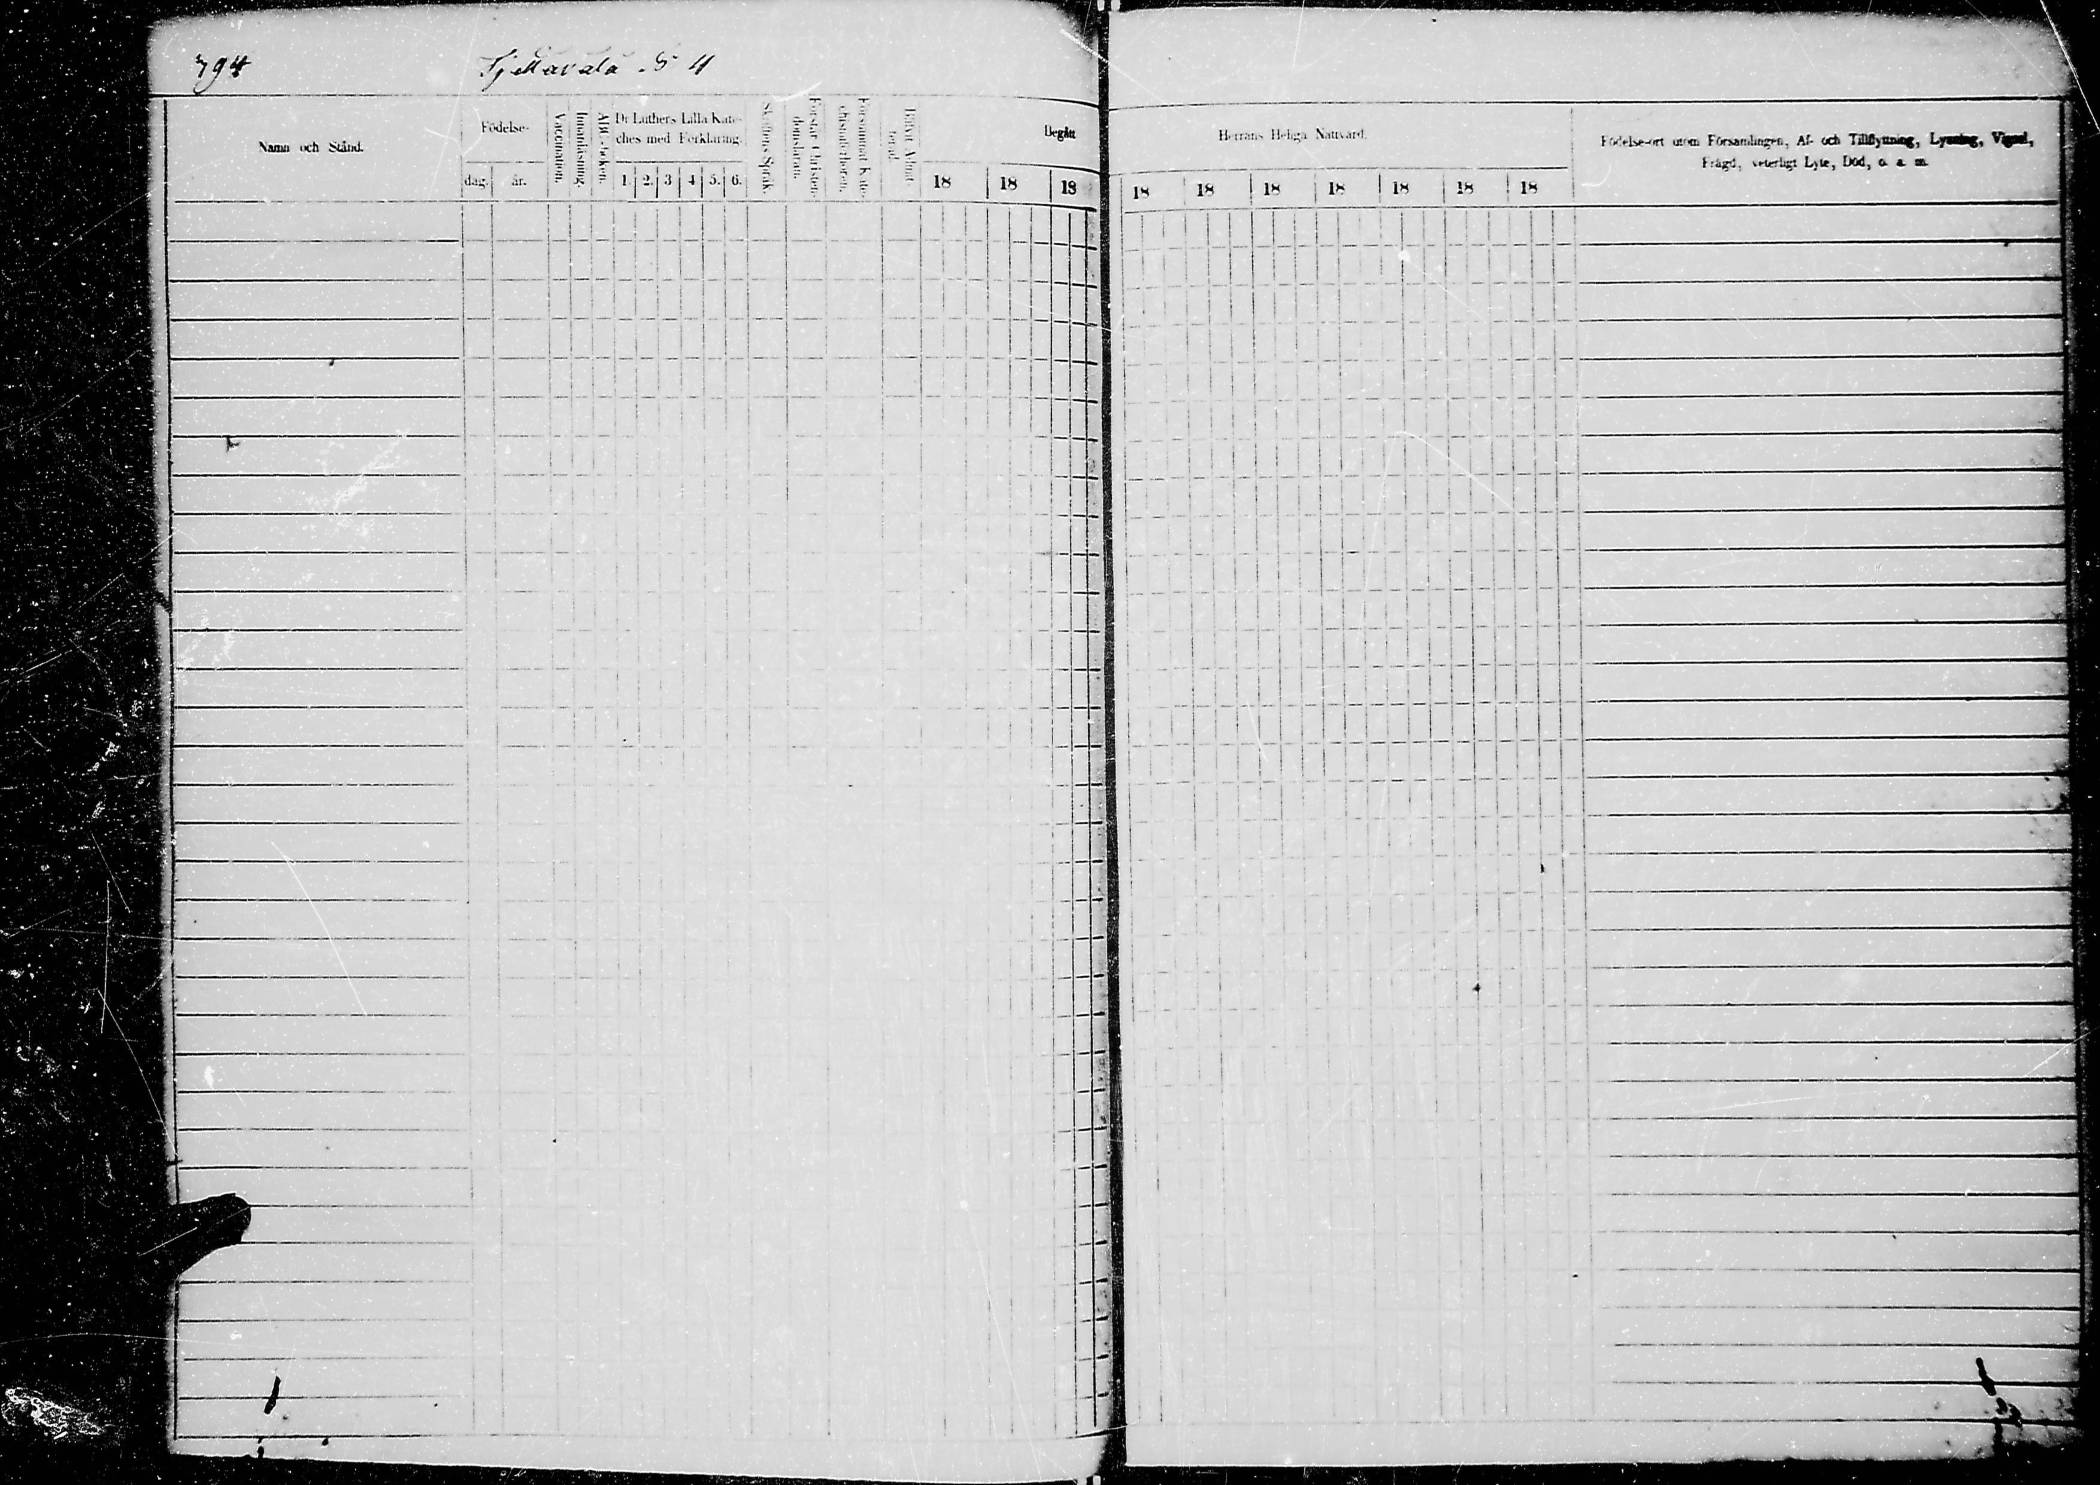 794
Tjettavala N 4
Namn och Stånd.
Födelse-
dag.
år.
Vaccination.
Innanläsning.
ABC-boken.
Dr Luthers Lilla Kate-
ches med Förklaring.
1. 2. 3 4 5. 6.
Skriftens Språk.
Förstår Christen-
domsläran.
Försummat Kate-
chismiförhören.
Begått
18 18 18
Herrans Heliga Nattvard.
18 18 18 18 18 18 18
Födelse-ort utom Församlingen, Af- och Tillflyttning, Lysning, Vigsel,
Frägd, veterligt Lyte, Död, o. s. m.